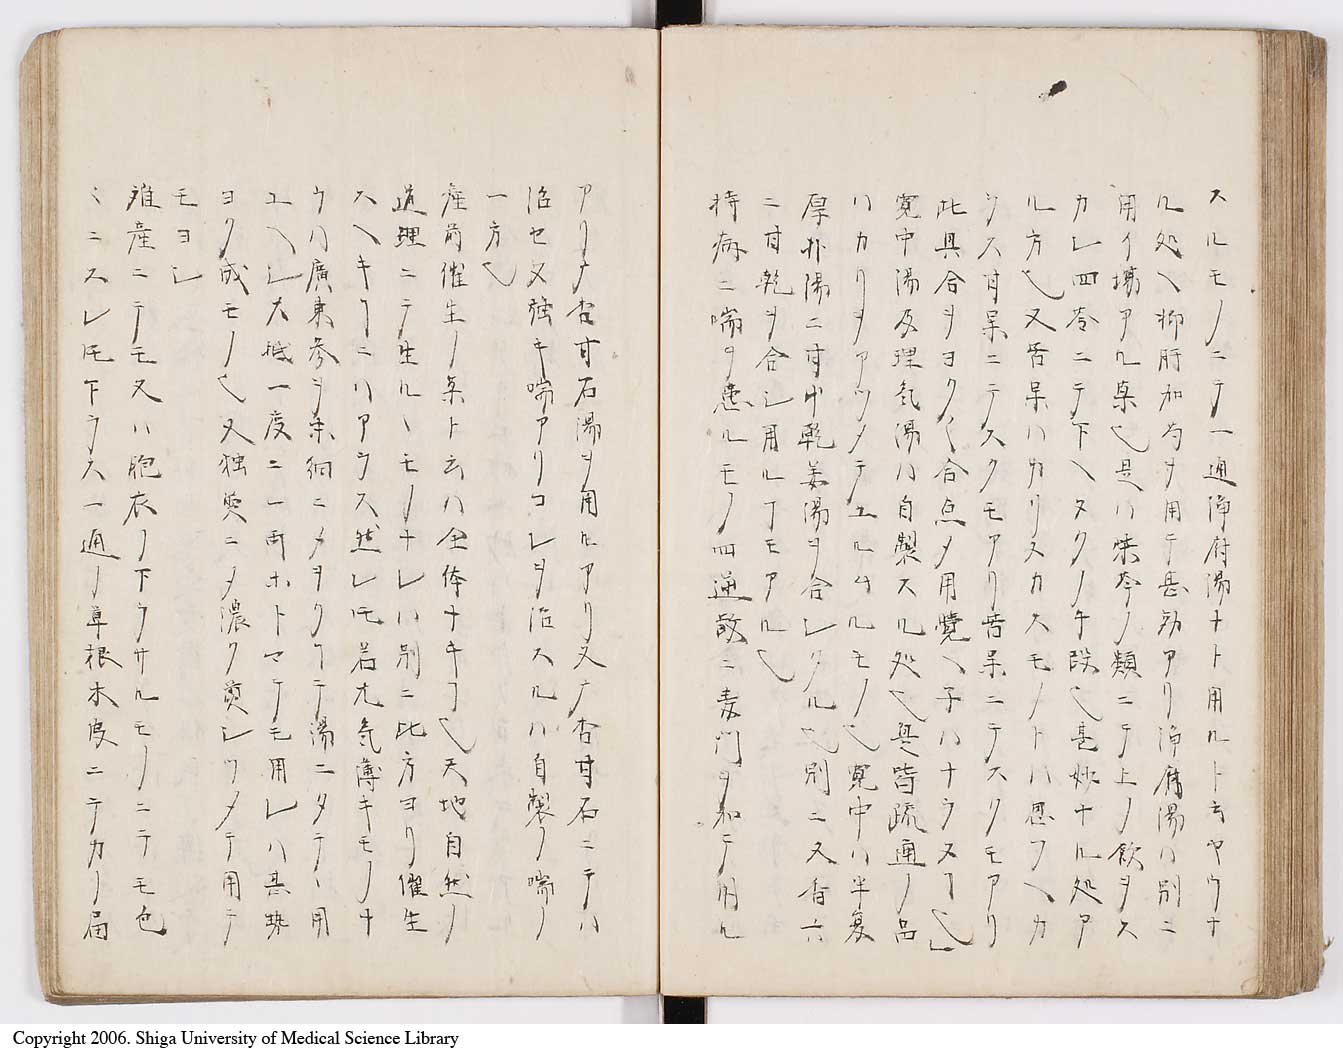 スルモノニテ一通浄府湯ナト用ルト云ヤウナ
ル処ヘ抑肝加芍ヲ用テ甚効アリ浄府湯ハ別ニ
用イ場アル薬也是ハ芩ノ類ニテ上ノ飲ヲス
カシ四苓ニテ下ヘヌクノ手段也甚妙ナル処ア
ル方也又呆ハカリスカスモノトハ思フヘカ
ラス甘呆ニテスクモアリ苦呆ニテスクモアリ
此具合ヲヨク〱合点〆用覚ヘ子ハナラヌ也
寛中湯及理気湯ハ自製スル処也是皆疏通ノ品
ハカリヲアツメテユルムルモノ也寛中ハ半夏
厚朴湯ニ甘中乾姜湯ヲ合シタル也別ニ又香六
ニ甘乾ヲ合シ用ルヿモアル也
持病ニ喘ヲ患ルモノ四逆散ニ麦門ヲ加テ用ル
アリナ杏甘石湯ヲ用ルアリ又ナ杏甘石ニテハ
治セヌ強キ喘アリコレヲ治スルハ自製ノ喘ノ
一方也
産前催生ノ薬ト云ハ全体ナキヿ也天地自然ノ
道理ニテ生ルヽモノナレハ別ニ此方ヨリ催生
スヘキヿニハアラス然レ𪜈若尤気薄キモノナ
ラハ廣東参ヲ余細ニ〆ヲクリテ湯ニタテヽ用
ユヘシ大抵一度ニ一両ホトマテモ用レハ甚勢
ヨク成モノ也又独煎ニ〆濃ク煎シツメテ用テ
モヨシ
難産ニテモ又ハ胞衣ノ下ラサルモノニテモ色
ミニスレ𪜈下ラス一通ノ草根木皮ニテカノ届